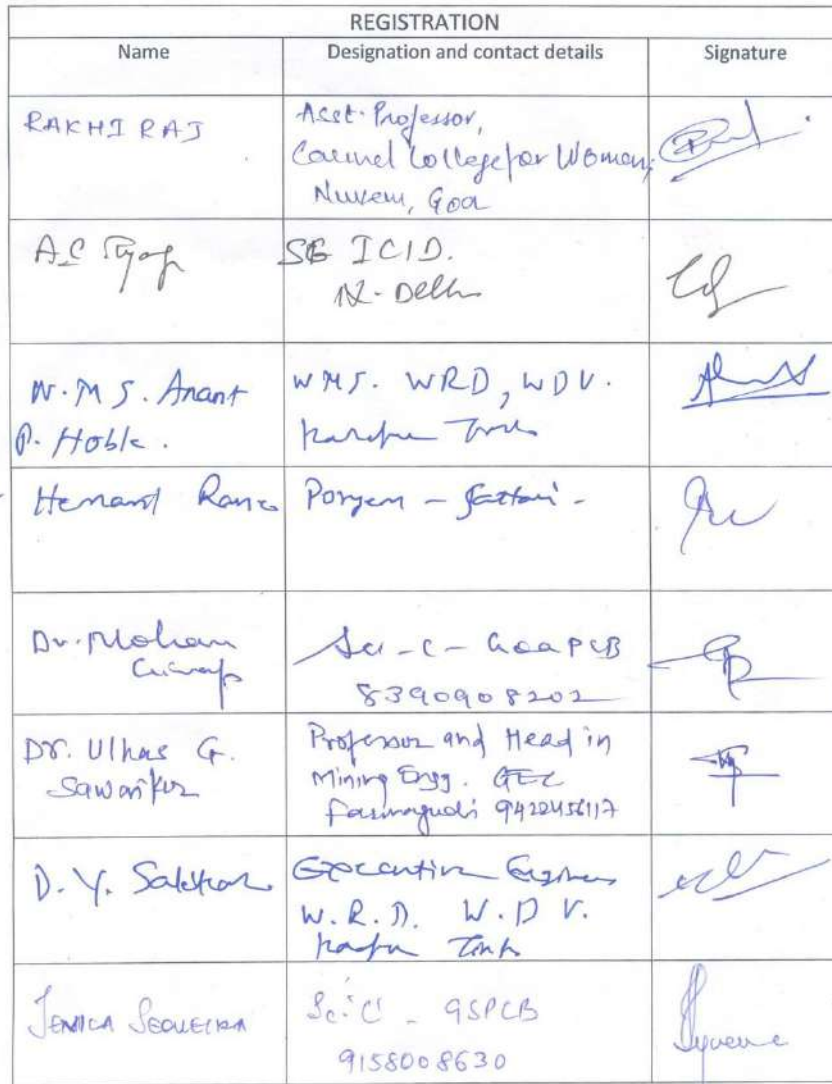 REGISTRATION
Name Designation and contact details Signature
RAKHI RAJ
Asst. Professor,
Carmel College for Women,
Nuvem, Goa
A.C
ICID.
N. Delhi
W.M S. Anant
P. Hoble.
WMS. WRD, WDV.
Hemant Rane
Poryem - Sattari -
Dr. Mohan
Sci - C - Goa PCB
8390908202
Dr. Ulhas G.
Sawaikar
Professor and Head in
Mining Engg. GEC
Farmagudi 9422456117
D. Y. Salelkar
Executive Engineer
W.R.D. W.D V.
JENICA SEQUEIRA
Sc. 'C' - GSPCB
9158008630